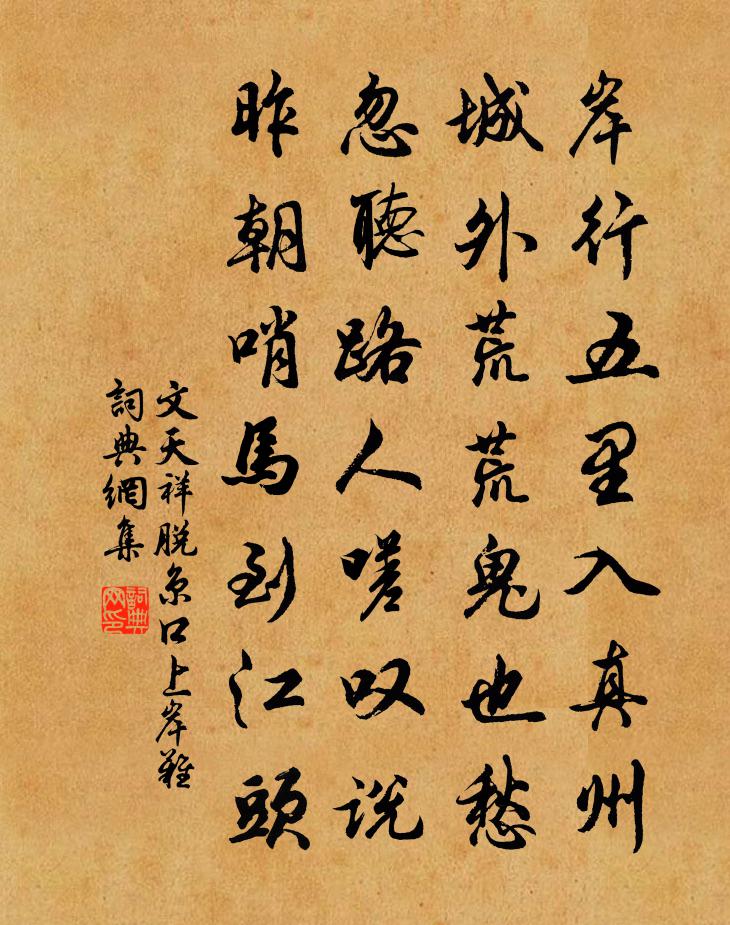 岸行五里入真州
城外荒荒鬼也愁
忽聽路人嗟叹说
昨朝哨馬到江頭
文天祥脱京口上岸難
詞典網集
詞典网印